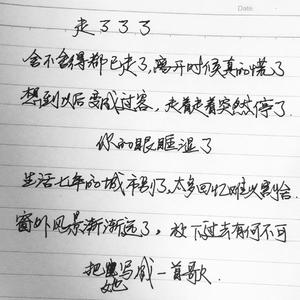 Date:
走了了了
舍不舍得都已走了,离开时候真的慌了
想到以后变成过客,走着走着突然停了.
你的眼眶湿了
生活七年的城市别了,太多回忆难以割舍.
窗外风景渐渐远了,放下过去有何不可
把她写成一首歌.